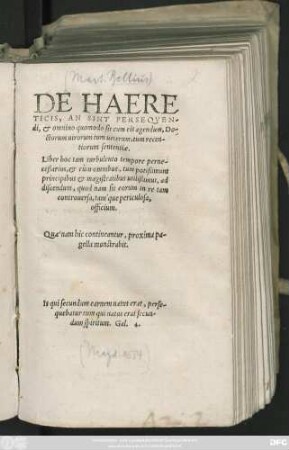 (Mart. Bellius)
DE HAERE
TICIS, AN SINT PERSEQVEN-
di, & omnino quomodo sit cum eis agendum, Do-
ctorum virorum tum veterum, tum recen-
tiorum sententiæ.
Liber hoc tam turbulento tempore perne-
cessarius, & cùm omnibus, tum potissimum
principibus & magistratibus utilissimus, ad
discendum, quod nam sit eorum in re tam
controuersa, tam'que periculosa,
officium.
Quæ nam hic contineantur, proxima pa-
gella monstrabit.
Is qui secundum carnem natus erat, perse-
quebatur eum qui natus erat secun-
dum spiritum. Gal. 4.
1554)
DFG